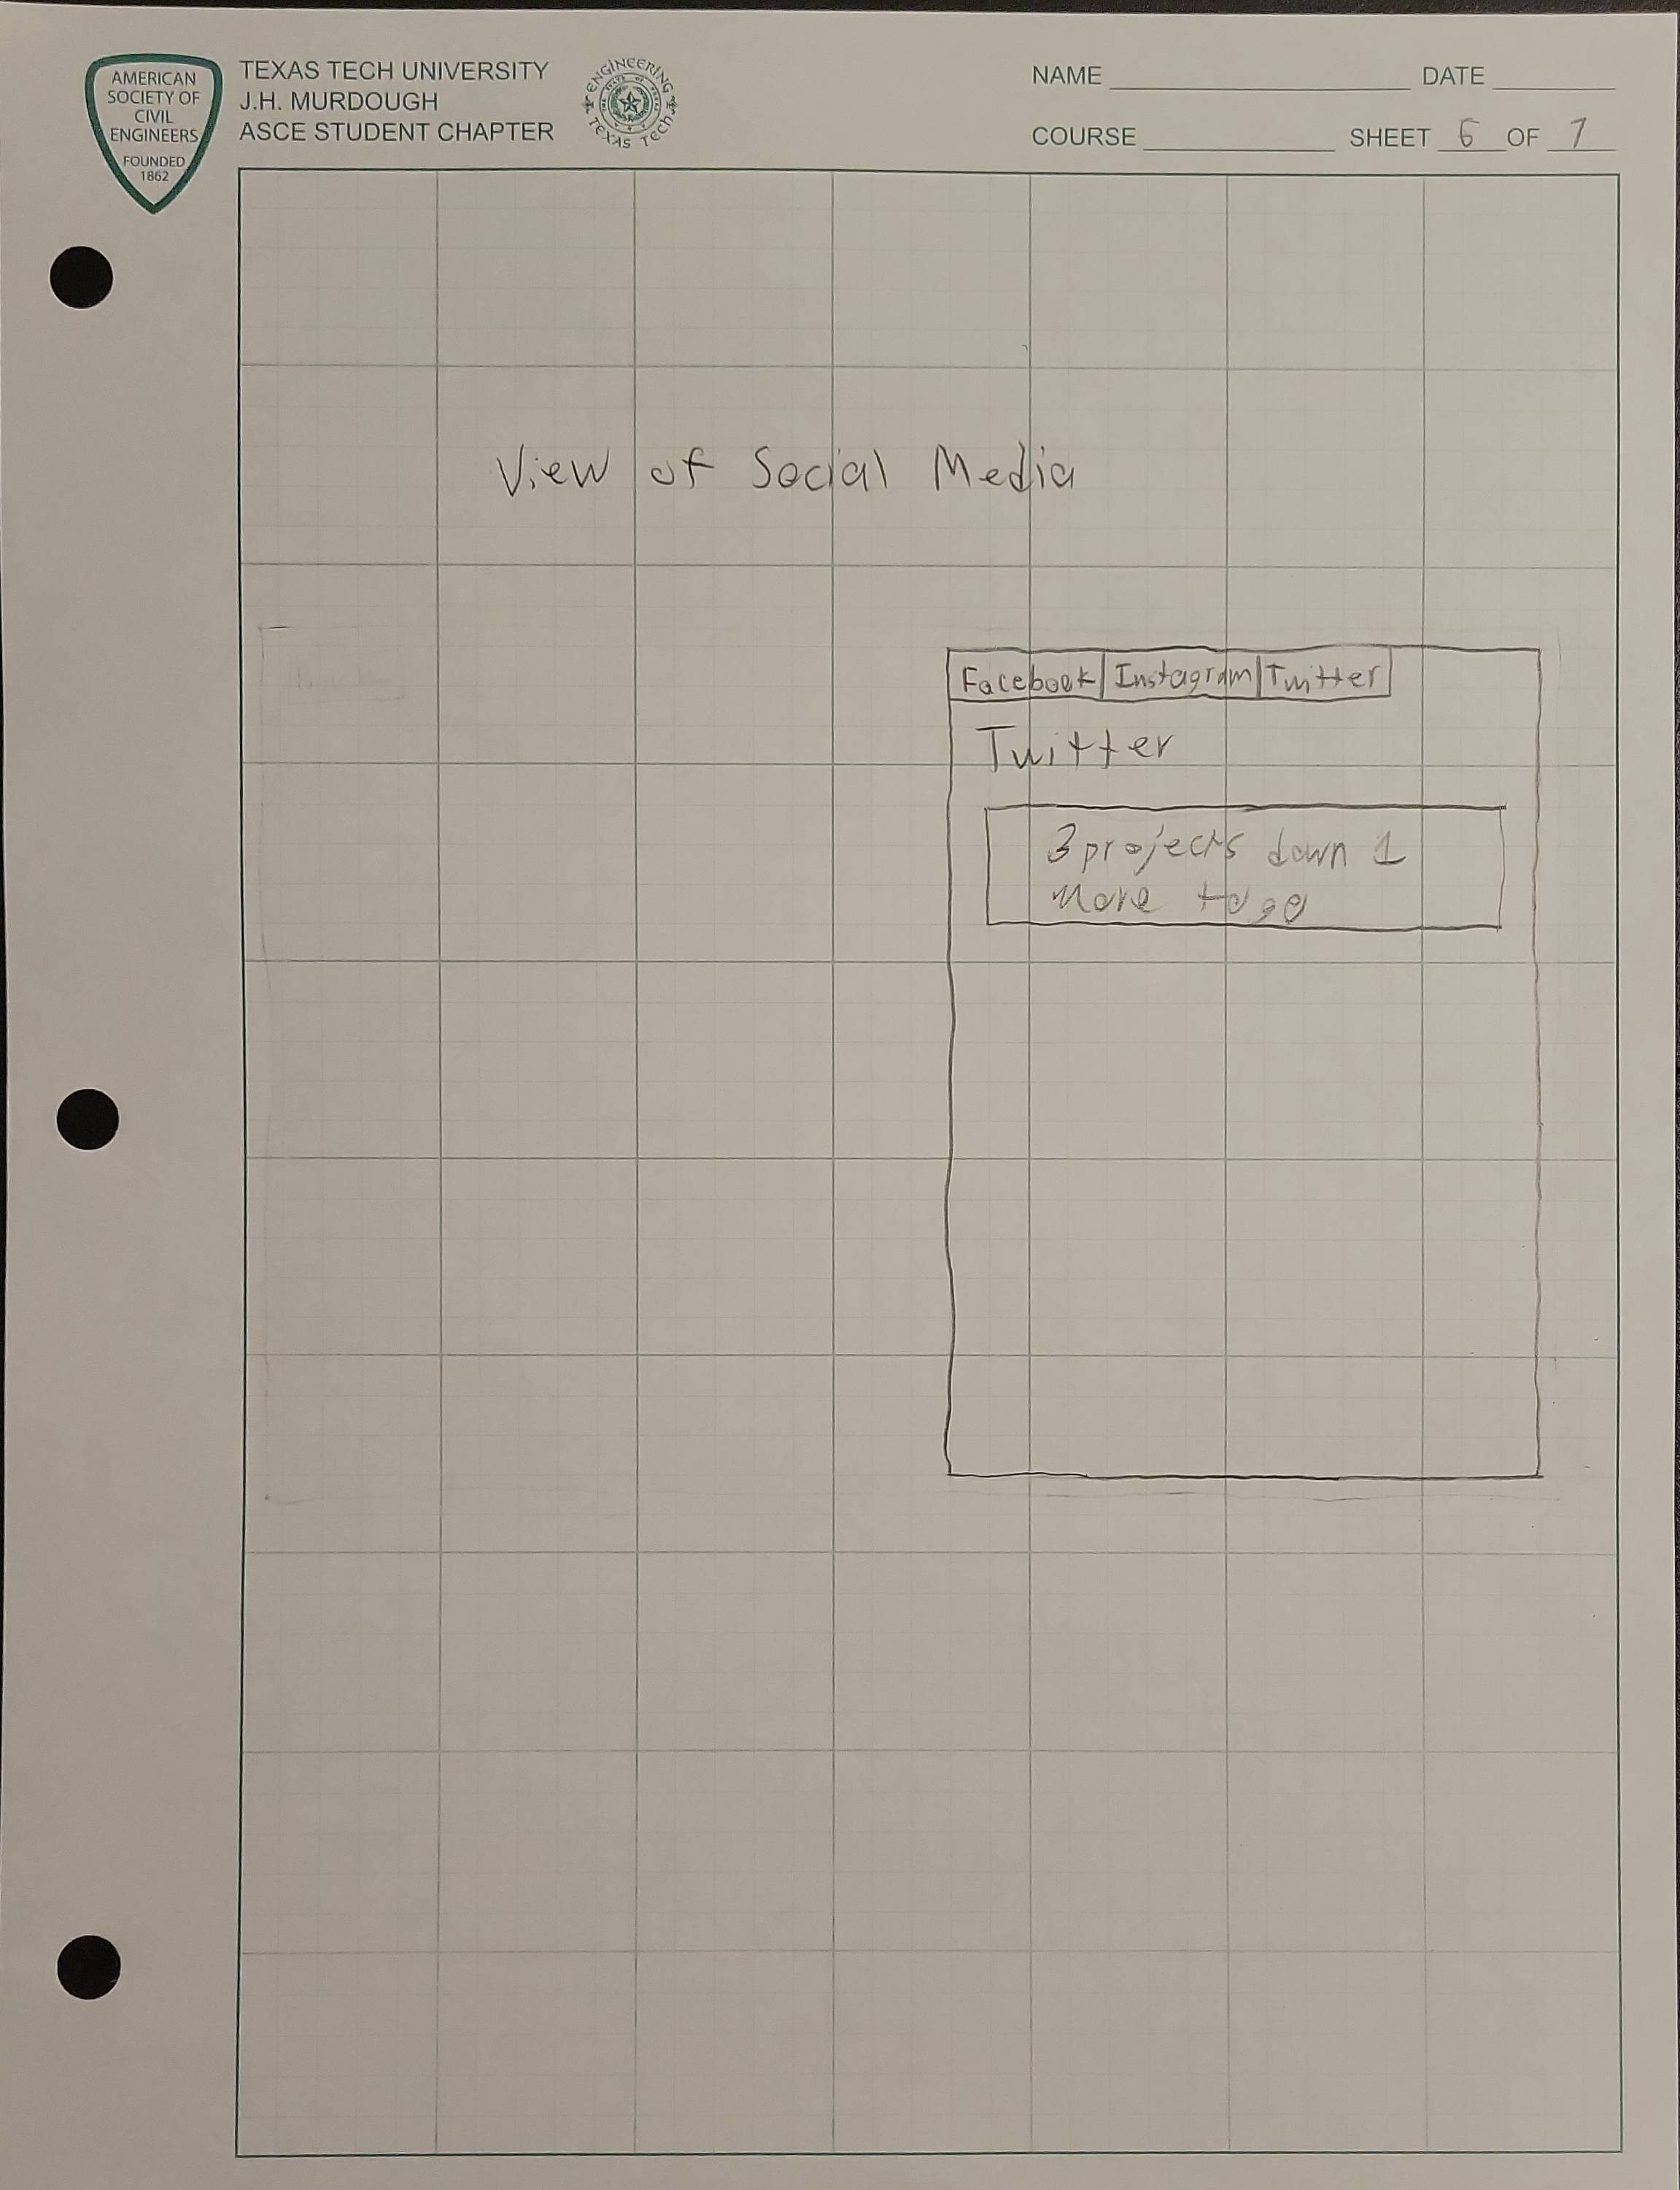 AMERICAN
SOCIETY OF
CIVIL
ENGINEERS
FOUNDED
1862
TEXAS TECH UNIVERSITY
J.H. MURDOUGH
ASCE STUDENT CHAPTER
ENGINEERING
TEXAS TECH
NAME DATE
COURSE SHEET 6 OF 7
View of Social Media
Facebook Instagram Twitter
Twitter
3 projects down 1
More to go